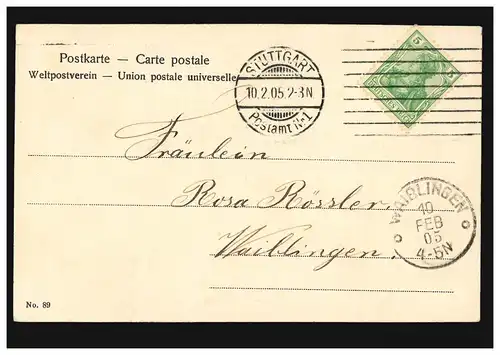 Postkarte — Carte postale
Weltpostverein — Union postale universelle
STUTTGART
10.2.05 2-3N
Postamt No 1
5 5
Fräulein
Rosa Rössler,
Waiblingen.
WAIBLINGEN
10
FEB
05
4-5N
No. 89